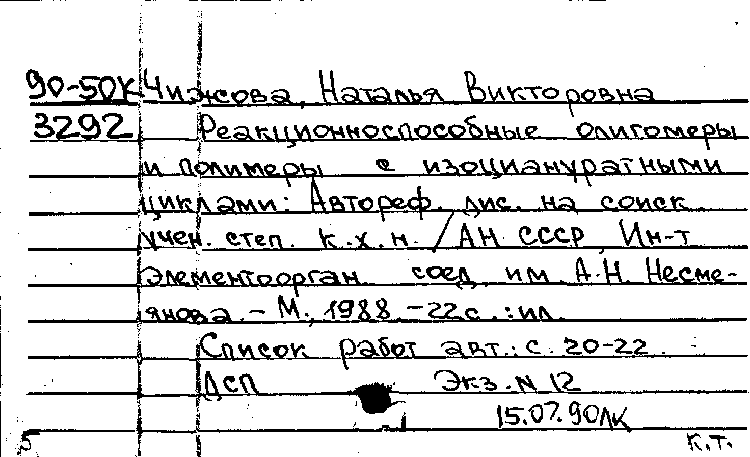 90-50К Чижова, Наталья Викторовна
3292 Реакционноспособные олигомеры
и полимеры с изоциануратными
циклами: Автореф. дис. на соиск.
учен. степ. к.х.н. / АН СССР, Ин-т
элементоорган. соед. им. А.Н. Несме-
янова. - М., 1988. - 22 с. : ил.
Список работ авт.: с. 20-22.
ДСП Экз. N 12
15.07.90ЛК
5 К.Т.